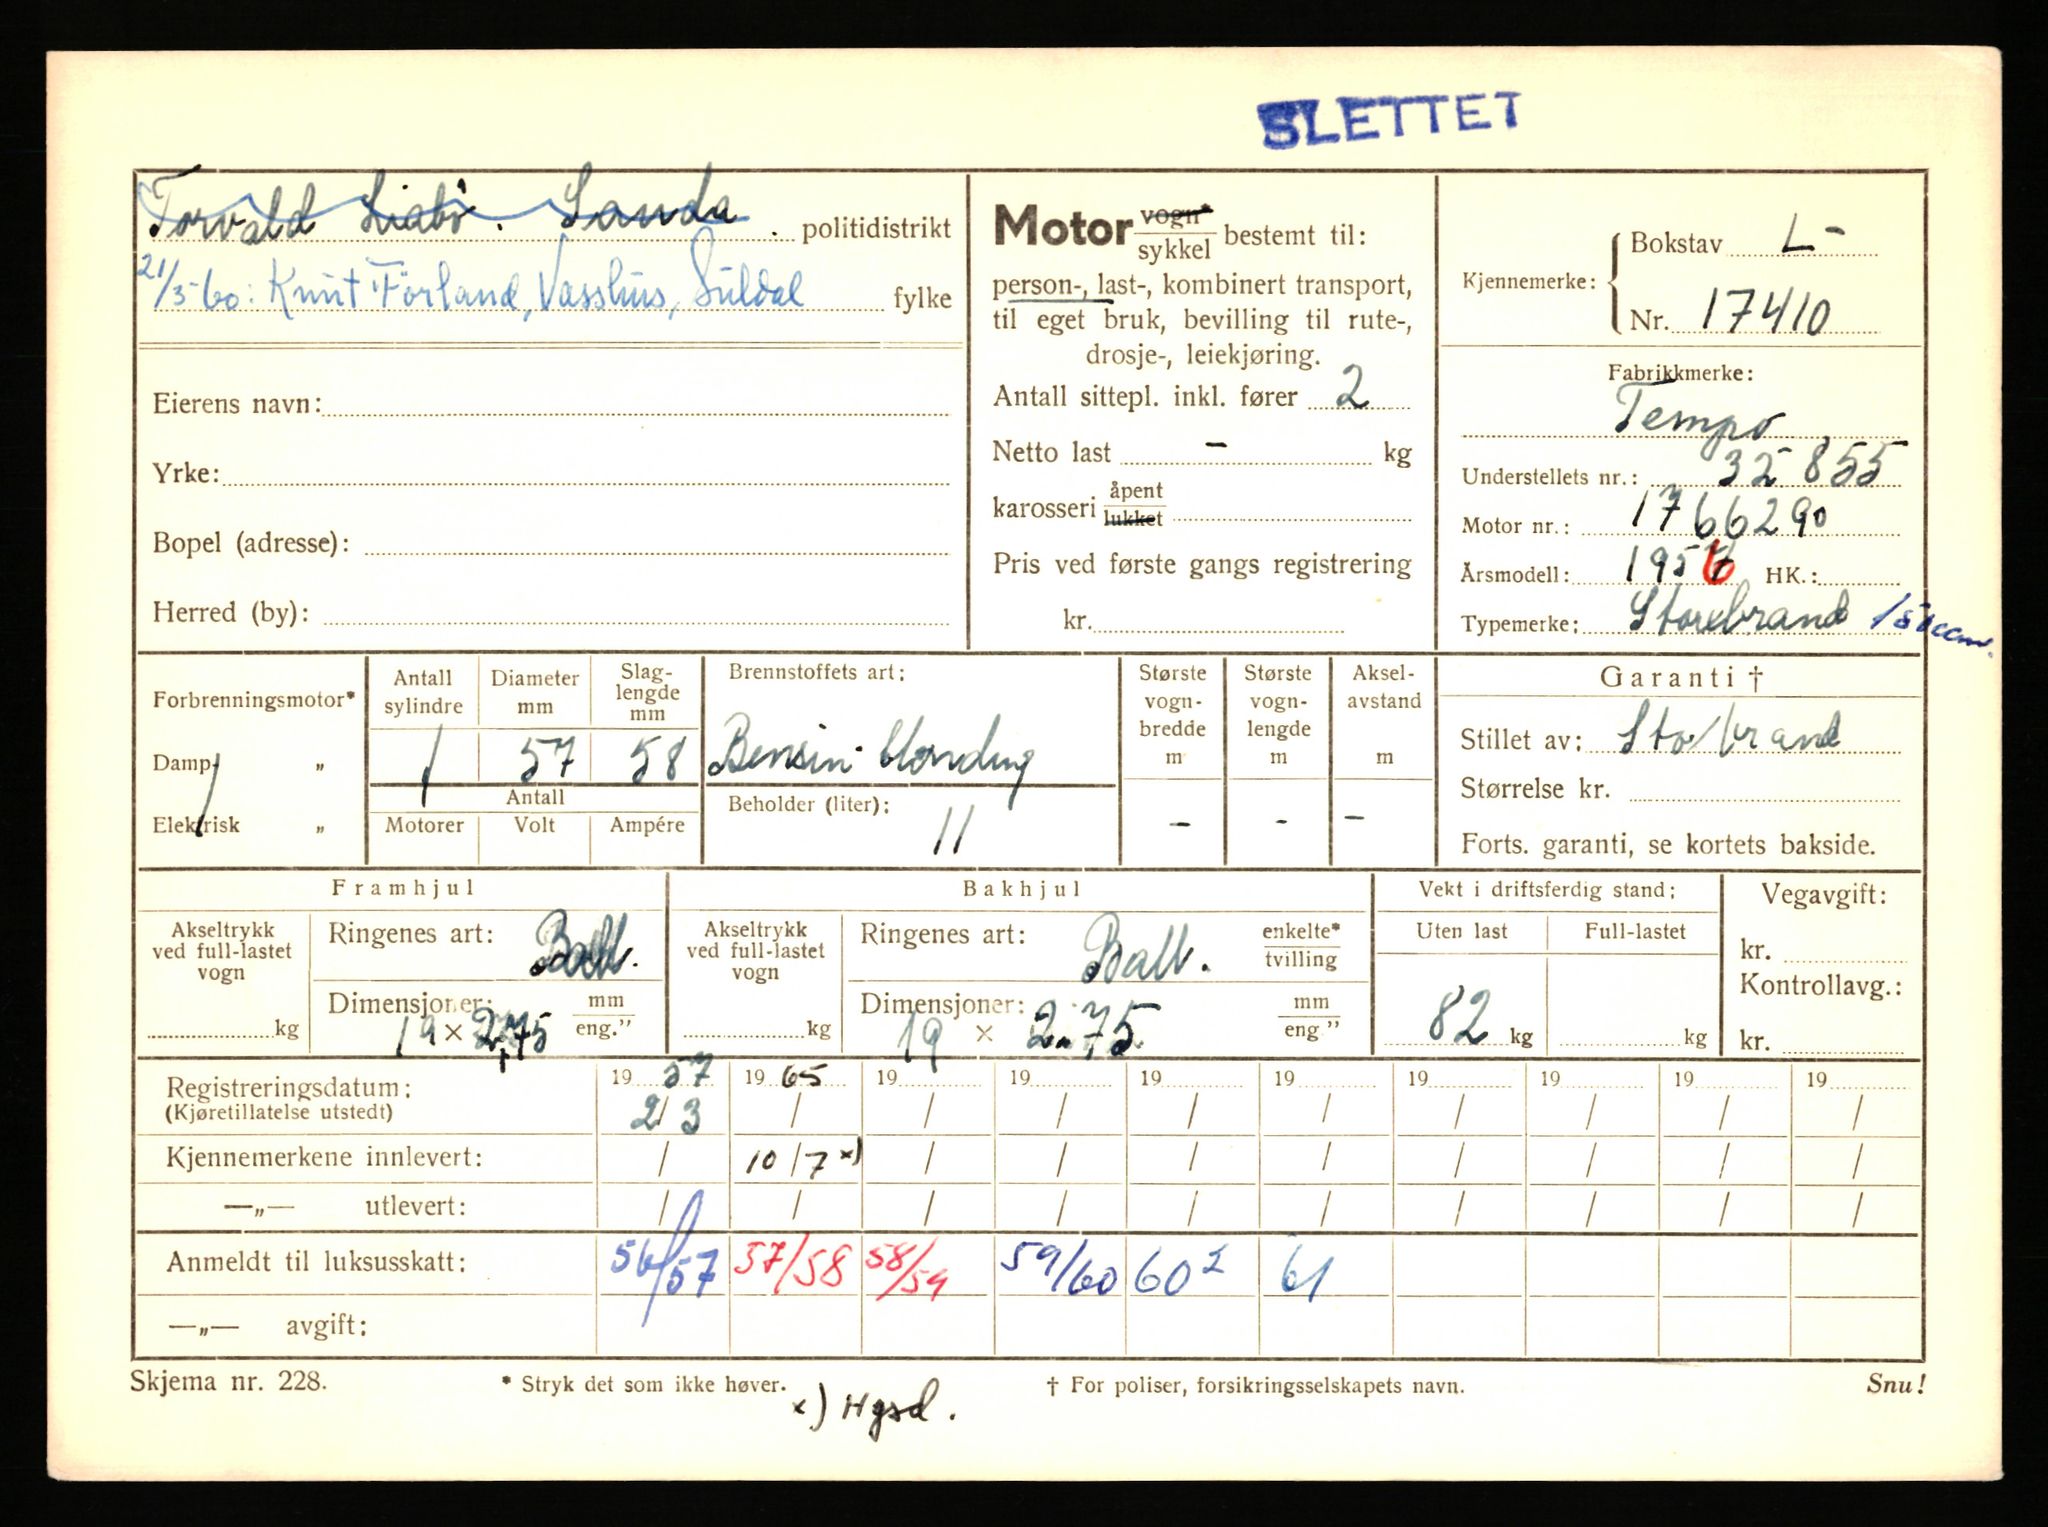 SLETTET
Torvald Liabö. Sanda politidistrikt
21/5-60: Knut Förland, Vasshus, Suldal fylke
Eierens navn:
Yrke:
Bopel (adresse):
Herred (by):
Motor vogn* sykkel bestemt til:
person-, last-, kombinert transport,
til eget bruk, bevilling til rute-,
drosje-, leiekjøring.
Antall sittepl. inkl. fører 2
Netto last - kg
karosseri åpent lukket
Pris ved første gangs registrering
kr.
Kjennemerke: Bokstav L-
Nr. 17410
Fabrikkmerke:
Tempo
Understellets nr.: 32 855
Motor nr.: 1766290
Årsmodell: 1956 HK.:
Typemerke: Storebrand 150ccm.
Forbrenningsmotor*
Damp „
Elektrisk „
Antall sylindre
Diameter mm
Slaglengde mm
1 57 58
Antall
Motorer Volt Ampére
Brennstoffets art:
Bensin blanding
Beholder (liter):
11
Største vognbredde m -
Største vognlengde m -
Akselavstand m -
Garanti †
Stillet av: Storbrand
Størrelse kr.
Forts. garanti, se kortets bakside.
Framhjul
Akseltrykk ved full-lastet vogn
kg
Ringenes art: Ball.
Dimensjoner: mm eng."
19 x 2,75
Bakhjul
Akseltrykk ved full-lastet vogn
kg
Ringenes art: Ball. enkelte* tvilling
Dimensjoner: mm eng"
19 x 2.75
Vekt i driftsferdig stand:
Uten last Full-lastet
82 kg kg
Vegavgift:
kr.
Kontrollavg.:
kr.
Registreringsdatum: 19 57 19 65 19 19 19 19 19 19 19 19
(Kjøretillatelse utstedt) 2/3 / / / / / / / / /
Kjennemerkene innlevert: / 10/7 x) / / / / / / / /
—„— utlevert: / / / / / / / / / /
Anmeldt til luksusskatt: 56/57 57/58 58/59 59/60 60² 61
—„— avgift:
Skjema nr. 228. * Stryk det som ikke høver. † For poliser, forsikringsselskapets navn. Snu!
x) Hgsd.